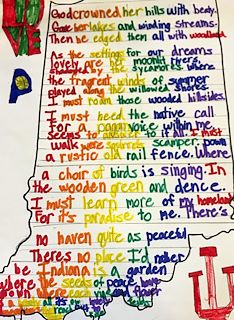 God crowned her hills with beaty.
Gave her lakes and winding streams.
Then he edged them all with woodland
As the settings for our dreams
lovely are her moonlit rivers
shadowed by the sycamores where
the fragrent winds of summer
played along the willowed shores.
I must roam those wooded hillsides.
I must heed the native call
For a pagan voice within me
seems to answer it all. I must
walk were squirrels scamper. Down
a rustic old rail fence. Where
a choir of birds is singing. In
the wooden green and dence.
I must learn more of my homeland
For it's paradise to me. There's
no haven quite as peaceful
There's no place I'd rather
be Indiana is a garden
where the seeds of peace have
grown where each vine and flower